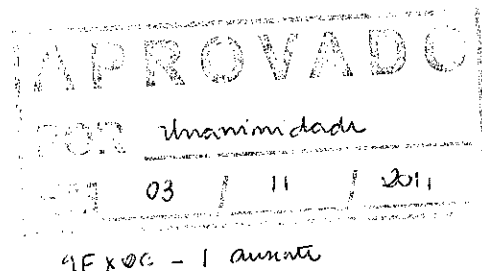 APROVADO
POR Unanimidade
EM 03 / 11 / 2011
9F X 0C - 1 ausente